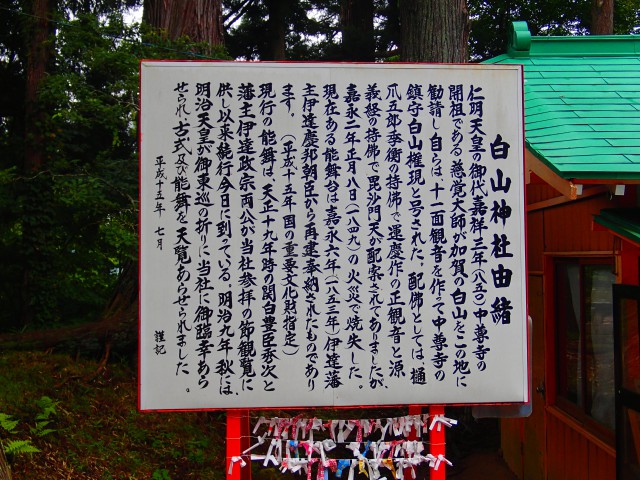 白山神社由緒
仁明天皇の御代嘉祥三年(八五〇)中尊寺の
開祖である慈覚大師が加賀の白山をこの地に
勧請し自らは、十一面観音を作って中尊寺の
鎮守白山権現と号された。配佛としては、樋
爪五郎季衡の持佛で運慶作の正観音と源
義経の持佛で毘沙門天が配案されてありましたが
嘉永二年正月八日(一八四九)の火災で焼失した。
現在ある能舞台は嘉永六年(一八五三年)伊達藩
主伊達慶邦朝臣から再建奉納されたものであり
ます。(平成十五年 国の重要文化財指定)
現行の能舞は、天正十九年時の関白豊臣秀次と
藩主伊達政宗両公が当社参拝の節観覧に
供し以来続行今日に到っている。明治九年秋には、
明治天皇が御東巡の折りに当社に御臨幸あら
せられ古式及び能舞を天覧あらせられました。
平成十五年 七月 謹記